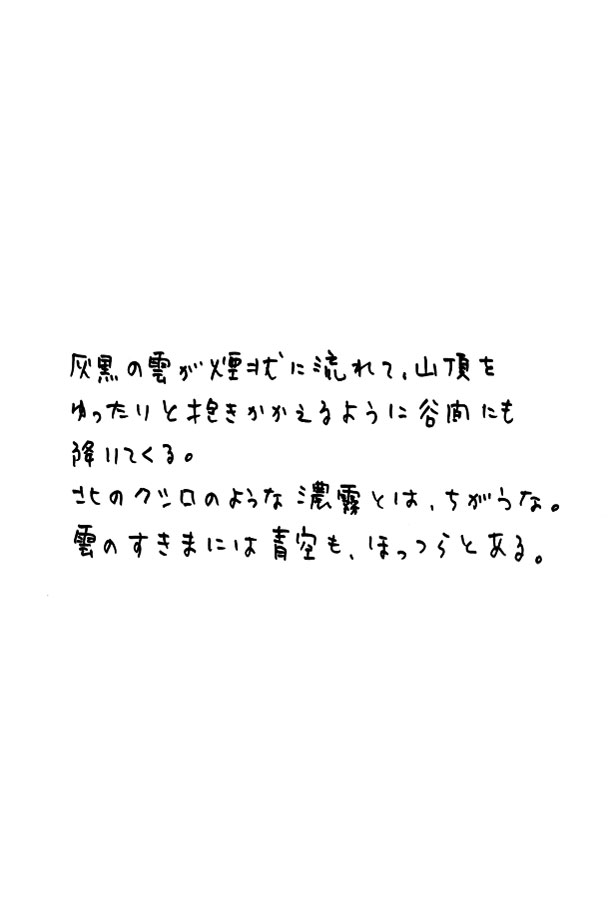 灰黒の雲が煙状に流れて、山頂を
ゆったりと抱きかかえるように谷間にも
降りてくる。
北のクシロのような濃霧とは、ちがうな。
雲のすきまには青空も、ほっつらとある。